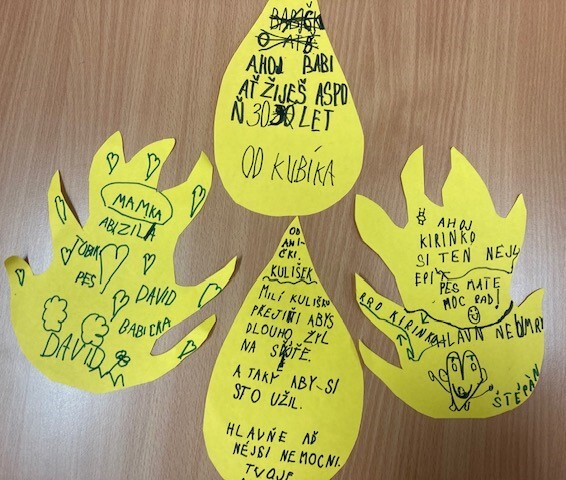 AHOJ BABI
AŤ ŽIJEŠ ASPO
Ň 30 LET
OD KUBÍKA
MAMKA
ABIZILA
TOBIK
PES
DAVID
BABIČKA
DAVID
OD
ANI-
ČKI.
KULIŠEK
MILÍ KULIŠKU
PREJI ABYS
DLOUHO ŽYL
NA
A TAKY ABY-SI
STO UŽIL.
HLAVŇE AŤ
NEJSI NEMOCNI.
TVOJE
AHOJ
KIRINKO
SI TEN NEJL
EPI
PES MÁTE
MOC RAD!
PRO KIRINKO
HLAVŇ NEUMRI
ŠTĚPÁN